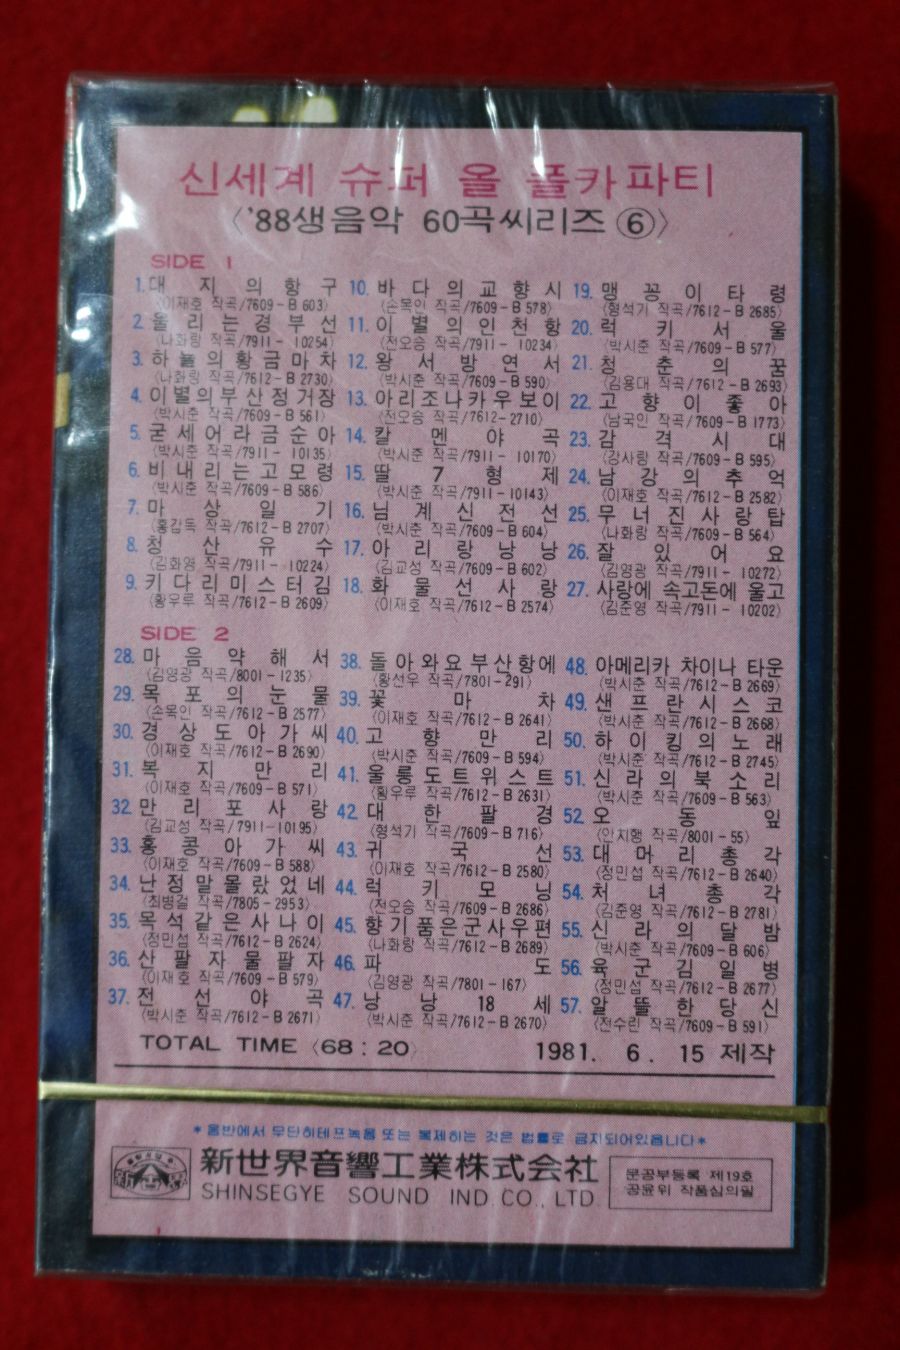 신세계 슈퍼 올 폴카파티
〈'88생음악 60곡씨리즈 ⑥〉
SIDE 1
1. 대지의항구
〈이재호 작곡/7609-B 603〉
2. 울리는경부선
〈나화랑 작곡/7911-10254〉
3. 하늘의황금마차
〈나화랑 작곡/7612-B 2730〉
4. 이별의부산정거장
〈박시춘 작곡/7609-B 561〉
5. 굳세어라금순아
〈박시춘 작곡/7911-10135〉
6. 비내리는고모령
〈박시춘 작곡/7609-B 586〉
7. 마상일기
〈홍갑득 작곡/7612-B 2707〉
8. 청산유수
〈김화영 작곡/7911-10224〉
9. 키다리미스터김
〈황우루 작곡/7612-B 2609〉
10. 바다의교향시
〈손목인 작곡/7609-B 578〉
11. 이별의인천항
〈전오승 작곡/7911-10234〉
12. 왕서방연서
〈박시춘 작곡/7609-B 590〉
13. 아리조나카우보이
〈전오승 작곡/7612-2710〉
14. 칼멘야곡
〈박시춘 작곡/7911-10170〉
15. 딸7형제
〈박시춘 작곡/7911-10143〉
16. 님계신전선
〈박시춘 작곡/7609-B 604〉
17. 아리랑낭낭
〈김교성 작곡/7609-B 602〉
18. 화물선사랑
〈이재호 작곡/7612-B 2574〉
19. 맹꽁이타령
〈형석기 작곡/7612-B 2685〉
20. 럭키서울
〈박시춘 작곡/7609-B 577〉
21. 청춘의꿈
〈김용대 작곡/7612-B 2693〉
22. 고향이좋아
〈남국인 작곡/7609-B 1773〉
23. 감격시대
〈강사랑 작곡/7609-B 595〉
24. 남강의추억
〈이재호 작곡/7612-B 2582〉
25. 무너진사랑탑
〈나화랑 작곡/7609-B 564〉
26. 잘있어요
〈김영광 작곡/7911-10272〉
27. 사랑에 속고돈에 울고
〈김준영 작곡/7911-10202〉
SIDE 2
28. 마음약해서
〈김영광 작곡/8001-1235〉
29. 목포의눈물
〈손목인 작곡/7612-B 2577〉
30. 경상도아가씨
〈이재호 작곡/7612-B 2690〉
31. 복지만리
〈이재호 작곡/7609-B 571〉
32. 만리포사랑
〈김교성 작곡/7911-10195〉
33. 홍콩아가씨
〈이재호 작곡/7609-B 588〉
34. 난정말몰랐었네
〈최병걸 작곡/7805-2953〉
35. 목석같은사나이
〈정민섭 작곡/7612-B 2624〉
36. 산팔자물팔자
〈이재호 작곡/7609-B 579〉
37. 전선야곡
〈박시춘 작곡/7612-B 2671〉
38. 돌아와요부산항에
〈황선우 작곡/7801-291〉
39. 꽃마차
〈이재호 작곡/7612-B 2641〉
40. 고향만리
〈박시춘 작곡/7609-B 594〉
41. 울릉도트위스트
〈황우루 작곡/7612-B 2631〉
42. 대한팔경
〈형석기 작곡/7609-B 716〉
43. 귀국선
〈이재호 작곡/7612-B 2580〉
44. 럭키모닝
〈전오승 작곡/7609-B 2686〉
45. 향기품은군사우편
〈나화랑 작곡/7612-B 2689〉
46. 파도
〈김영광 작곡/7801-167〉
47. 낭낭18세
〈박시춘 작곡/7612-B 2670〉
48. 아메리카 차이나 타운
〈박시춘 작곡/7612-B 2669〉
49. 샌프란시스코
〈박시춘 작곡/7612-B 2668〉
50. 하이킹의노래
〈박시춘 작곡/7612-B 2745〉
51. 신라의북소리
〈박시춘 작곡/7609-B 563〉
52. 오동잎
〈안치행 작곡/8001-55〉
53. 대머리총각
〈정민섭 작곡/7612-B 2640〉
54. 처녀총각
〈김준영 작곡/7612-B 2781〉
55. 신라의달밤
〈박시춘 작곡/7609-B 606〉
56. 육군김일병
〈정민섭 작곡/7612-B 2677〉
57. 알뜰한당신
〈전수린 작곡/7609-B 591〉
TOTAL TIME 〈68:20〉 1981. 6. 15 제작
*음반에서 무단히테프녹음 또는 복제하는 것은 법률로 금지되어있읍니다*
新世界音響工業株式会社
SHINSEGYE SOUND IND. CO., LTD.
문공부등록 제19호
공윤위 작품심의필